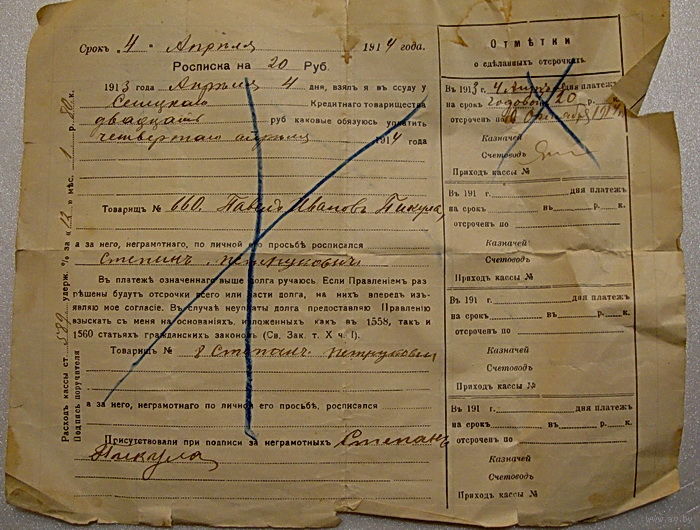 Срокъ „4“ Апрѣля 1914 года.
Росписка на 20 Руб.
1913 года Апрѣля 4 дня, взялъ я въ ссуду у
Кредитнаго товарищества
двадцать руб каковые обязуюсь уплатить
четвертаго апрѣля 1914 года
Товарищъ № 660. Павелъ Ивановъ Пикула,
а за него, неграмотнаго, по личной его просьбѣ росписался
Степанъ Петруковичъ
Въ платежѣ означеннаго выше долга ручаюсь. Если Правленіемъ раз
рѣшены будутъ отсрочки всего или части долга, на нихъ впередъ изъ-
являю мое согласіе. Въ случаѣ неуплаты долга предоставляю Правленію
взыскать съ меня на основаніяхъ, изложенныхъ какъ въ 1558, такъ и
1560 статьяхъ гражданскихъ законовъ (Св. Зак. т. X ч. I).
Товарищъ № 8 Степанъ Петруковичъ
а за него, неграмотнаго по личной его просьбѣ, росписался
Присутствовали при подписи за неграмотныхъ Степанъ
Пикула
Расходъ кассы ст. 589 удерж. % за 12 мѣс. 1 р. 80 к.
Подпись поручателя
Отмѣтки
о сдѣланныхъ отсрочкахъ
Въ 1913 г. 4 Апр дня платежъ
на срокъ годовой 20 р. к.
отсроченъ по
Казначей
Счетоводъ
Приходъ кассы №
Въ 191 г. дня платежъ
на срокъ въ р. к.
отсроченъ по
Казначей
Счетоводъ
Приходъ кассы №
Въ 191 г. дня платежъ
на срокъ въ р. к.
отсроченъ по
Казначей
Счетоводъ
Приходъ кассы №
Въ 191 г. дня платежъ
на срокъ въ р. к.
отсроченъ по
Казначей
Счетоводъ
Приходъ кассы №